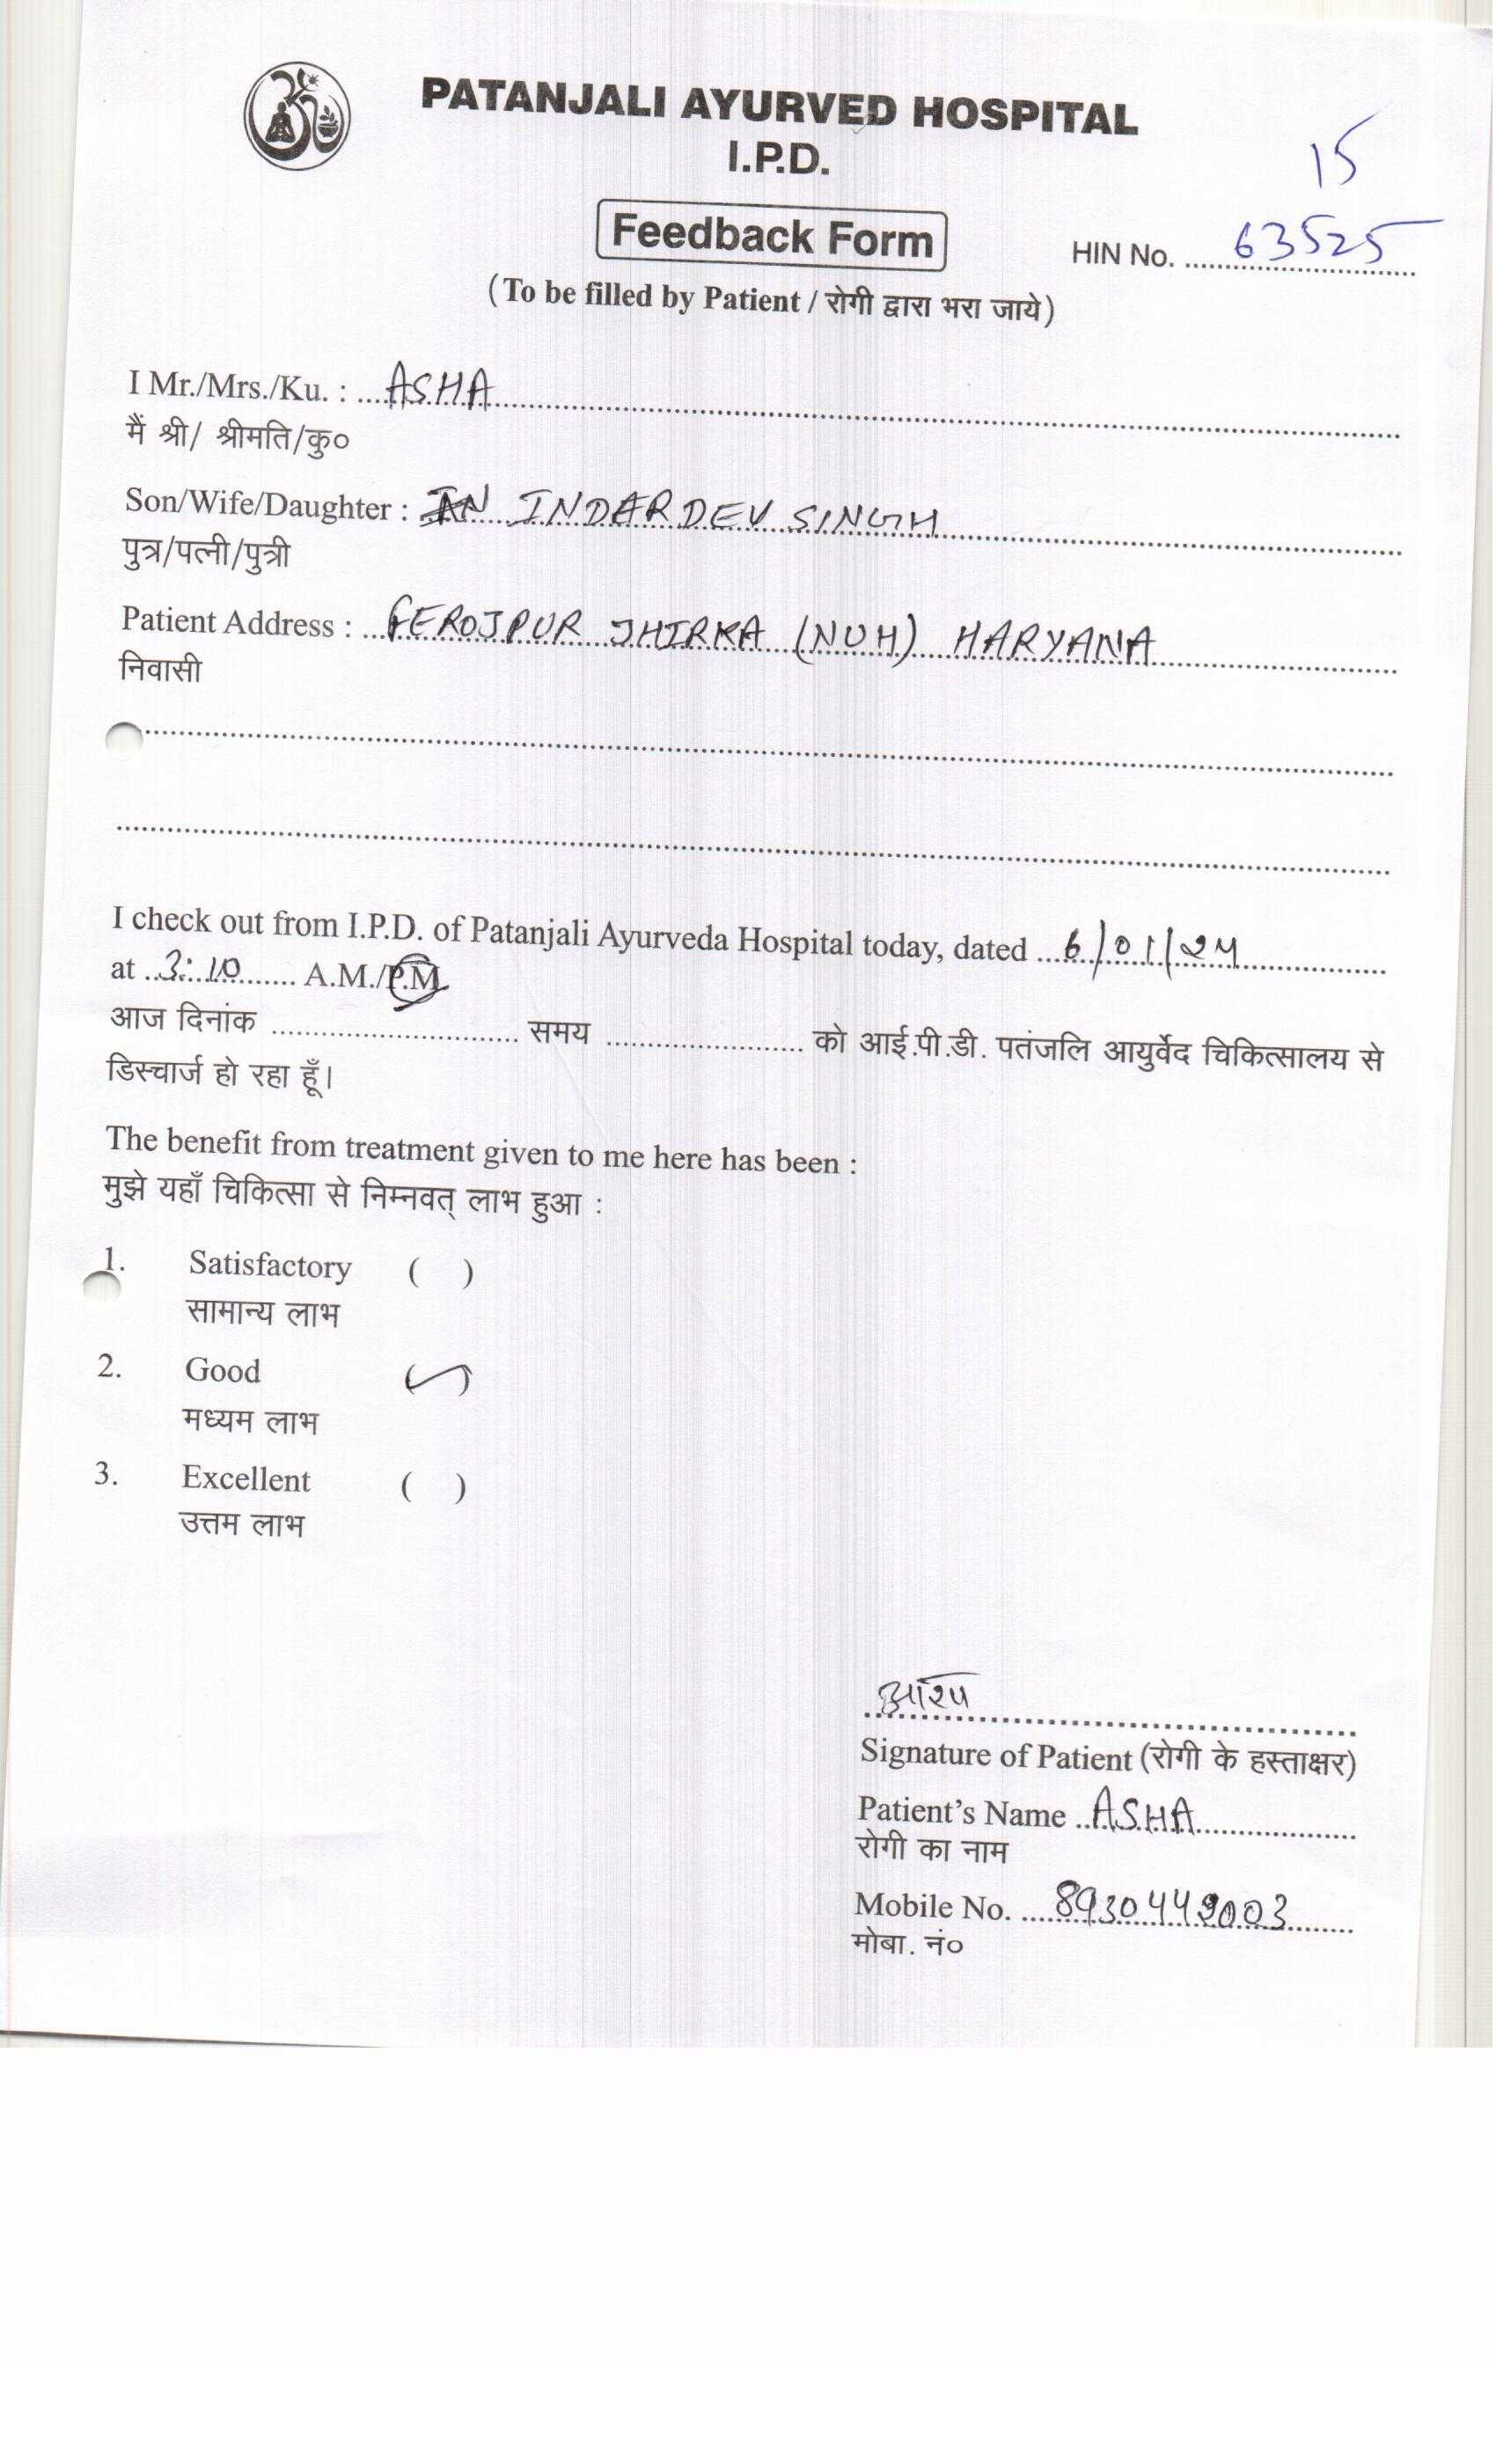 PATANJALI AYURVED HOSPITAL
I.P.D.
15
Feedback Form
HIN No. 63525
(To be filled by Patient / रोगी द्वारा भरा जाये)
I Mr./Mrs./Ku. : ASHA
मैं श्री/ श्रीमति/कु०
Son/Wife/Daughter : INDARDEV SINGH
पुत्र/पत्नी/पुत्री
Patient Address : FEROJPUR JHIRKA (NUH) HARYANA
निवासी
I check out from I.P.D. of Patanjali Ayurveda Hospital today, dated 6/01/24
at 3:10 A.M./P.M
आज दिनांक ........ समय ........ को आई.पी.डी. पतंजलि आयुर्वेद चिकित्सालय से
डिस्चार्ज हो रहा हूँ।
The benefit from treatment given to me here has been :
मुझे यहाँ चिकित्सा से निम्नवत् लाभ हुआ :
1. Satisfactory ( )
सामान्य लाभ
2. Good (✓)
मध्यम लाभ
3. Excellent ( )
उत्तम लाभ
Signature of Patient (रोगी के हस्ताक्षर)
Patient's Name ASHA
रोगी का नाम
Mobile No. 8930442003
मोबा. नं०